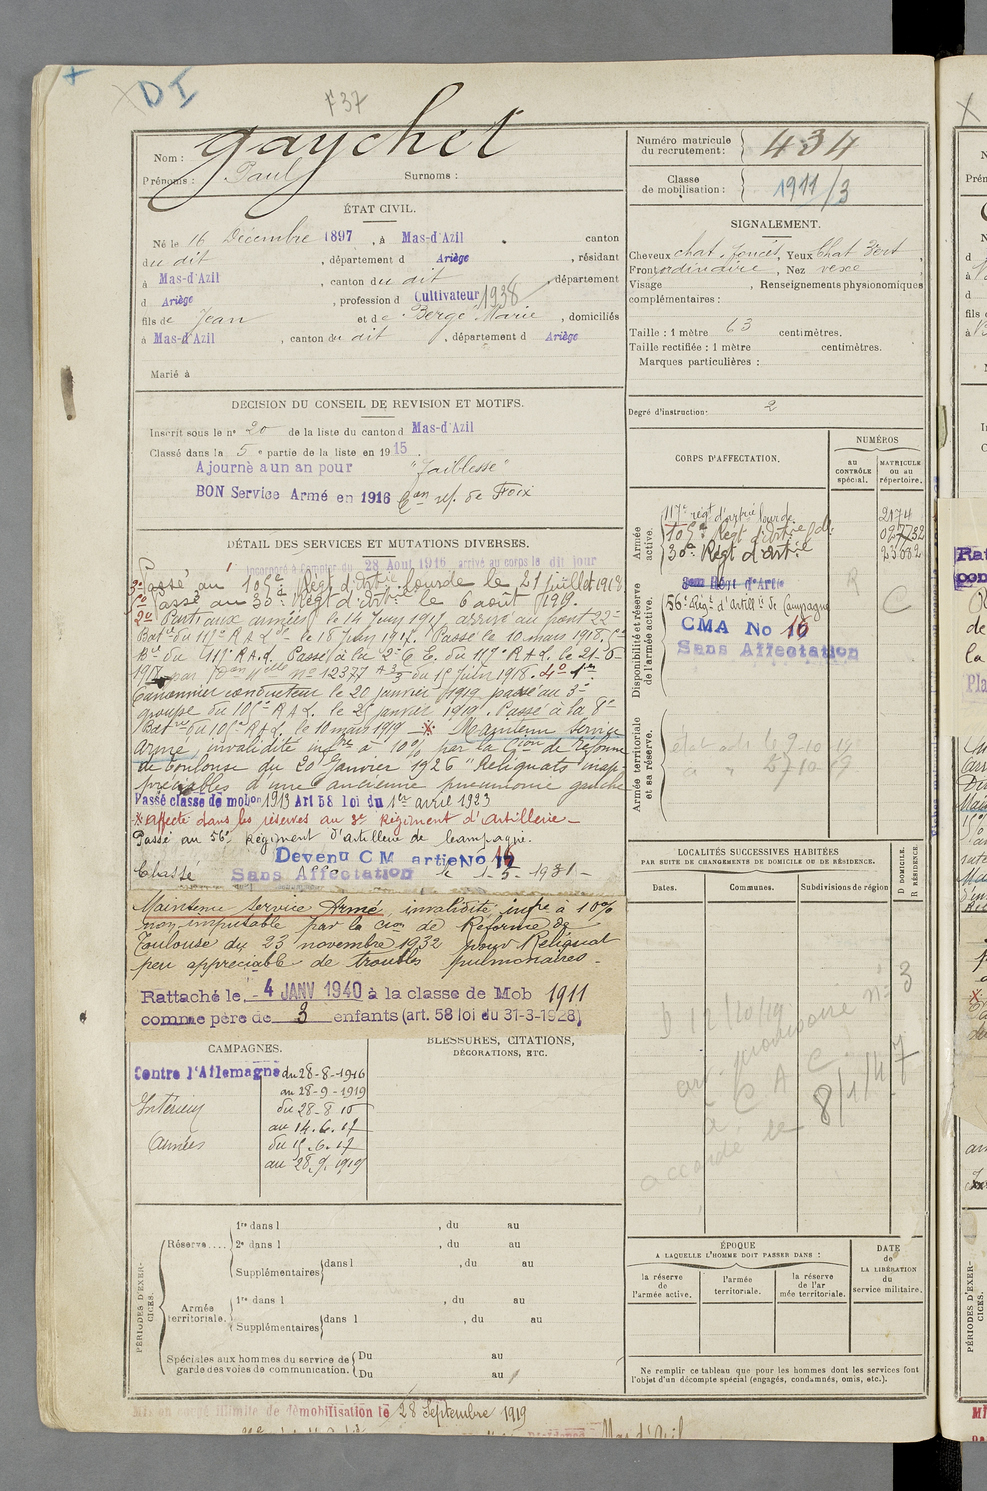 DI
F 37
Nom : Gaychet
Prénoms : Paul Surnoms :
ÉTAT CIVIL.
Né le 16 Décembre 1897, à Mas-d'Azil canton
du dit, département d Ariège, résidant
à Mas-d'Azil, canton du dit, département
d Ariège, profession d Cultivateur 1938
fils de Jean et de Berge Marie, domiciliés
à Mas-d'Azil, canton du dit, département d Ariège
Marié à
DECISION DU CONSEIL DE REVISION ET MOTIFS.
Inscrit sous le n° 20 de la liste du canton d Mas-d'Azil
Classé dans la 5e partie de la liste en 1915.
Ajourné a un an pour "Faiblesse"
BON Service Armé en 1916 Con ref. de Foix
DÉTAIL DES SERVICES ET MUTATIONS DIVERSES.
Incorporé à compter du 28 Aout 1916 arrivé au corps le dit jour
3° Passé au 105e Régt d'Artie lourde le 21 juillet 1919
Passé au 33e Régt d'Artie le 6 août 1919.
2° Parti aux armées le 14 Juin 1917, arrivé au front 22e
Batie du 117e R A L le 18 Juin 1917. Passé le 10 mars 1918,
Bie du 117e R.A.L. Passé à la 2e C.R. du 117e R.A.L. le 21-5-
1918 par n° 12377 du 15 Juin 1918. 4° 1er
Canonnier conducteur le 20 janvier 1919, passé au 3e
groupe du 105e R A L. le 25 janvier 1919. Passé à la 8e
Batie du 105e R A L. le 10 mars 1919 - Maintenu Service
armé, invalidité infre à 10% par la Cion de réforme
de Toulouse du 20 Janvier 1926 "Reliquats inap-
préciables d'une ancienne pneumonie gauche
Passé classe de mobon 1913 Art 58 loi du 1er avril 1923
Affecté dans les réserves au 3e Régiment d'Artillerie -
Passé au 56e Régiment d'Artillerie de Campagne.
Devenu C M artie No 16
Classé Sans Affectation le 1-5-1931 -
Maintenu Service Armé, invalidité infre à 10%
non imputable par la Cion de Réforme de
Toulouse du 23 novembre 1932 pour Reliquat
peu appreciable de troubles pulmonaires -
Rattaché le 4 JANV 1940 à la classe de Mob 1911
comme père de 3 enfants (art. 58 loi du 31-3-1928)
CAMPAGNES.
Contre l'Allemagne du 28-8-1916
au 28-9-1919
Intérieur du 28-8-16
au 14.6.17
Armées du 15.6.17
au 28.9.1919
BLESSURES, CITATIONS,
DÉCORATIONS, ETC.
PÉRIODES D'EXERCICES.
Réserve....
1re dans l , du au
2e dans l , du au
Supplémentaires dans l , du au
Armée territoriale.
1re dans l , du au
Supplémentaires dans l , du au
Spéciales aux hommes du service de garde des voies de communication. Du au
Du au
Mis en congé illimité de démobilisation le 28 Septembre 1919
Numéro matricule du recrutement : 434
Classe de mobilisation : 1911/3
SIGNALEMENT.
Cheveux chat. foncés, Yeux Chat Vert,
Front ordinaire, Nez vexe
Visage , Renseignements physionomiques
complémentaires :
Taille : 1 mètre 63 centimètres.
Taille rectifiée : 1 mètre centimètres.
Marques particulières :
Degré d'instruction : 2
CORPS D'AFFECTATION.
NUMÉROS
au CONTRÔLE spécial.
MATRICULE ou au répertoire.
Armée active.
117e régt d'artie lourde. 2174
105e Régt d'Artie lde
30e Régt d'Artie 23682
Disponibilité et réserve de l'armée active.
56e Régt d'Artillie de Campagne
R
C
CMA No 16
Sans Affectation
Armée territoriale et sa réserve.
LOCALITÉS SUCCESSIVES HABITÉES
PAR SUITE DE CHANGEMENTS DE DOMICILE OU DE RÉSIDENCE.
Dates.
Communes.
Subdivisions de région
D DOMICILE.
R RÉSIDENCE.
D 12/10/19
n° 3
C A C
8/1/47
à
accordé le
ÉPOQUE
A LAQUELLE L'HOMME DOIT PASSER DANS :
la réserve de l'armée active.
l'armée territoriale.
la réserve de l'armée territoriale.
DATE de LA LIBÉRATION du service militaire.
Ne remplir ce tableau que pour les hommes dont les services font
l'objet d'un décompte spécial (engagés, condamnés, omis, etc.).